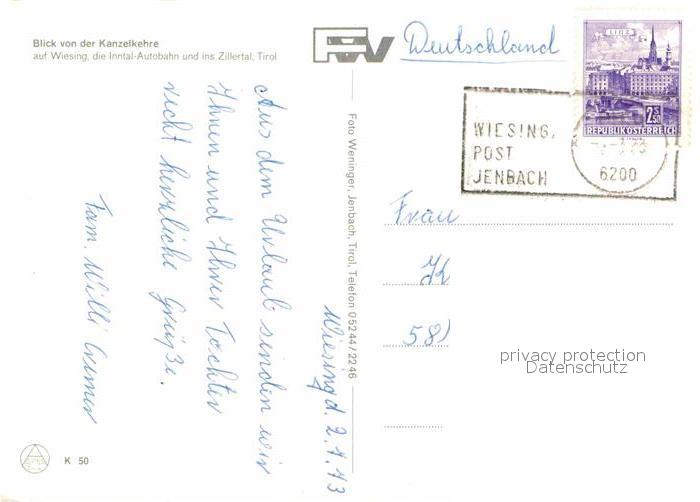 Blick von der Kanzelkehre
auf Wiesing, die Inntal-Autobahn und ins Zillertal, Tirol
FW
Deutschland
LINZ
2.50
S
REPUBLIK ÖSTERREICH
WIESING,
POST
JENBACH
6200
Wiesing d. 2.7.73
Aus dem Urlaub senden wir
Ihnen und Ihrer Tochter
recht herzliche Grüße.
Fam. Willi
Foto Weninger, Jenbach, Tirol, Telefon 05244/2246
Frau
58
privacy protection
Datenschutz
K 50